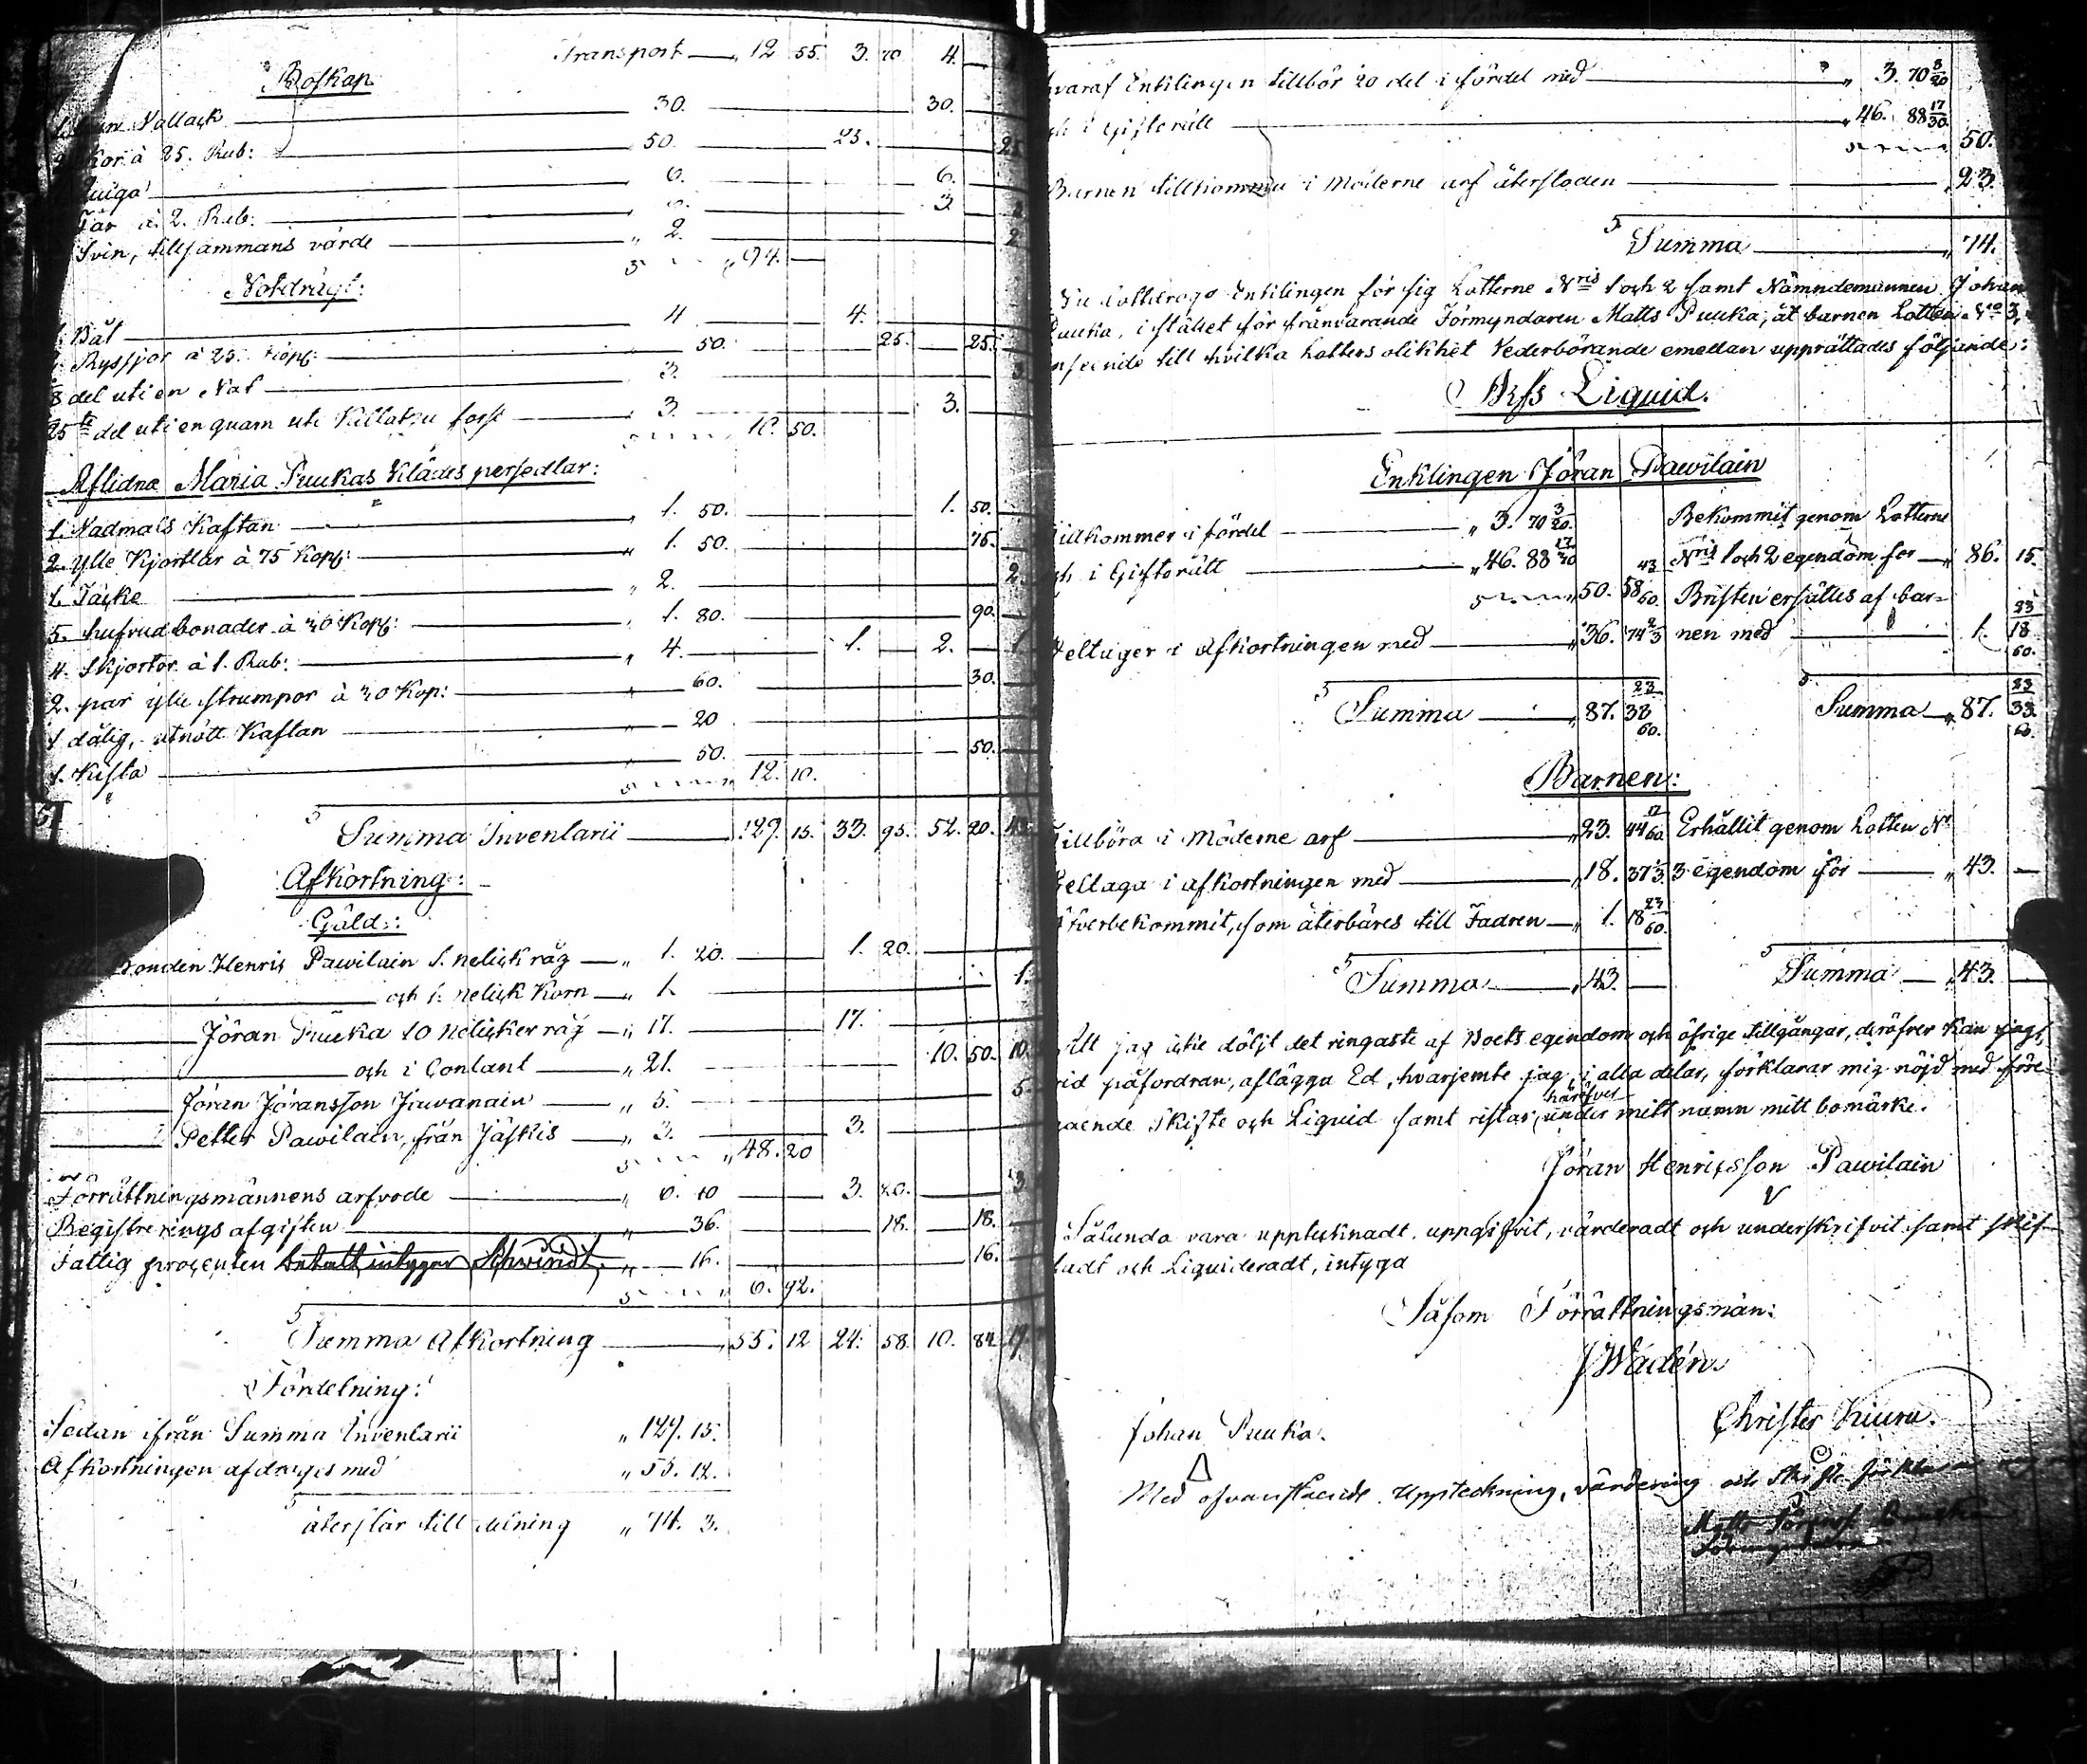 Transport — „ 12 55. 3. 70 4. —
Boskap
Vallack — 30. — 30.
Kor à 25. Rub: — „ 50. — 25. — 25
quiga — „ 6. — 6.
Får à 2. Rub: — „ 6. — 3
Svin, tillsammans värde — „ 2. — 2
„ 94. —
Notdrägt:
1. Båt — 4 — 4.
Ryssjor à 25. Kop: — „ 50. — 25. — 25.
8 del uti en Not — 3.
25te del uti en quarn uti fors — „ 3. — 3.
10. 50.
Aflidna Maria Puukas Klädes persedlar:
1. Vadmals Kaftan — „ 1. 50. — 1. 50.
2. Ylle Kjortlar à 75 Kop: — „ 1. 50. — 75.
1. Täcke — „ 2. — 2
5. hufvudbonader à 30 Kop: — „ 1. 80. — 90.
4. Skjortor à 1. Rub: — „ 4. — 1. — 2. — 1
2. par ylle strumpor à 30 Kop: — „ — 60. — 30.
1. dålig, utnött Kaftan — „ — 20
1. Kista — „ — 50. — 50.
„ 12. 10.
Summa Inventarii — 129. 15. 33. 95. 52. 20. 43
Afkortning:
Gäld:
Bonden Henric Pawilain 1. nelick råg — „ 1. 20. — 1. 20.
och 1. nelick Korn — „ 1. — 1.
Jöran Puuka 10 nelicker råg — „ 17. — 17.
och i Contant — „ 21. — 10. 50. 10.
Jöran Jöransson Jawanain — „ 5. — 5
Petter Pawilain, från Jäskis — „ 3. — 3.
„ 48. 20
Förrättningsmännens arfvode — „ 6. 40 — 3. 20. — 3
Registrerings afgiften — „ — 36. — 18. — 18.
Fattig procenten betalt, intygar Schvindt, „ — 16. — 16.
„ 6. 92.
Summa Afkortning — „ 55. 12 24. 58. 10. 84. 19
Fördelning:
Sedan ifrån Summa Inventarii „ 129. 15.
Afkortningen afdrages med „ 55. 12.
återstår till delning „ 74. 3.
hvaraf Enklingen tillhör 20 del i fördel med — „ 3. 70 3/20
och i Giftorätt — „ 46. 88 17/30
50.
Barnen tillkomma i Möderne arf återstoden — „ 23.
Summa — „ 74.
Nu lottdrogo Enklingen för sig Lotterne Nris 1 och 2 samt Nämndemannen Johan
Puuka, i stället för frånvarande Förmyndaren Matts Puuka, åt barnen Lotten No 3,
anseende till hvilka Lotters olikhet Vederbörande emellan upprättades följande:
Arfs Liquid.
Enklingen Jöran Pawilain
Tillkommer i fördel — „ 3. 70 3/20.
och i Giftorätt — „ 46. 88 17/30
„ 50. 58 43/60
Deltager i Afkortningen med — „ 36. 74 2/3
Summa — „ 87. 33 23/60.
Bekommit genom Lotterne
Nris 1 och 2 egendom för — „ 86. 15.
Bristen ersättes af bar-
nen med — 1. 18 23/60.
Summa — „ 87. 33 23/60.
Barnen:
Tillhöra i Möderne arf — „ 23. 44 17/60
Deltaga i afkortningen med — „ 18. 37 1/3
Öfverbekommit, som återbäres till Fadren — „ 1. 18 23/60.
Summa — „ 43. —
Erhållit genom Lotten No
3 egendom för — „ 43. —
Summa — „ 43. —
Att jag icke döljt det ringaste af Boets egendom och öfrige tillgångar, deröfver kan jag,
vid påfordran, aflägga Ed, hvarjemte jag, i alla delar, förklarar mig nöjd med före-
gående Skifte och Liquid samt ristar härofver under mitt namn mitt bomärke.
Jöran Henricsson Pawilain
Sålunda vara upptecknadt, uppgifvit, värderadt och underskrifvit samt skif-
tadt och Liquideradt, intyga
Såsom Förrättningsmän:
J Wadén.
Christer Kiuru.
Johan Puuka.
Med ofvanstående Uppteckning, värdering och Skifte
Matts